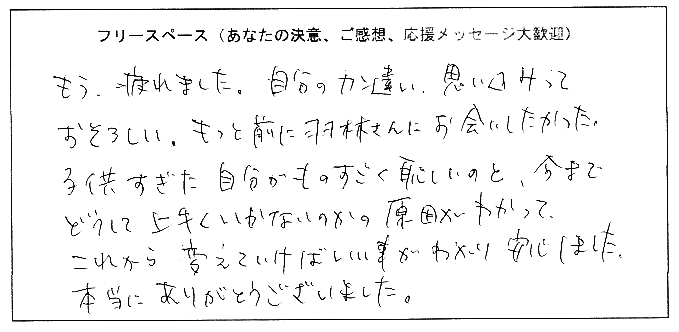 フリースペース（あなたの決意、ご感想、応援メッセージ大歓迎）
もう、疲れました。自分のカン違い、思いこみって
おそろしい。もっと前に羽林さんにお会いしたかった。
子供すぎた自分がものすごく恥しいのと、今まで
どうして上手くいかないのかの原因がわかって、
これから変えていけばいい事がわかり安心しました。
本当にありがとうございました。